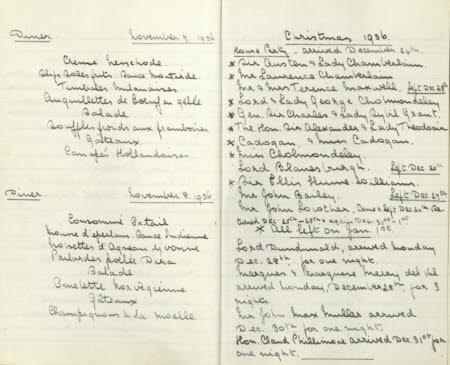 Diner November 7. 1936
Crème Nesselrode.
Slips Soles frits Sauce Moutarde.
Timbales Milanaises
Aiguillettes de Boeuf en gelée
Salade
Soufflés froids aux framboises
Gâteaux.
Canapés Hollandaises.
Diner November 8. 1936.
Consommé Oxtail
Mousse d'eperlans. Sauce Indienne
Noisettes d'Agneau Yvonne
Poulardes poêlée Dera
Salade
Omelette Norvégienne
Gâteaux
Champignons à la moelle
Christmas 1936.
House Party - arrived December 24th.
* Sir Austen & Lady Chamberlain.
* Mr Laurence Chamberlain
Mr & Mrs Terence Maxwell. left Dec 28th
* Lord & Lady George Cholmondeley
* Gen. Sir Charles & Lady Sybil Grant.
* The Hon. Sir Alexander & Lady Theodosia
* Cadogan, & Miss Cadogan.
* Miss Cholmondeley.
Lord Blanesburgh. left Dec 26th
* Sir Ellis Hume Williams.
Mr John Bailey. left Dec 29th
Mr John Lowther. Came & left Dec 24th Re-
turned Dec. 25th - 28th & again Dec. 31st - 1st
* All left on Jan. 1st.
Lord Dundonald, arrived Monday
Dec. 28th for one night.
Marques & Marquesa Merry del Val
arrived Monday, December 28th, for 3
nights.
Mr John Max Muller arrived
Dec. 30th for one night.
Hon. Claud Phillimore arrived Dec. 31st for
one night.